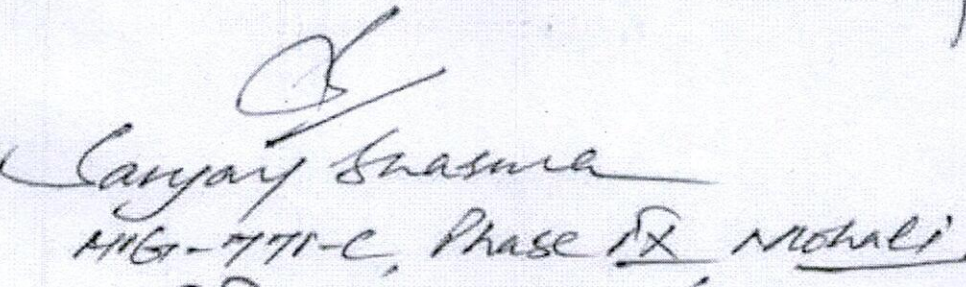 Sanjay Sharma
HIG-771-C, Phase IX, Mohali